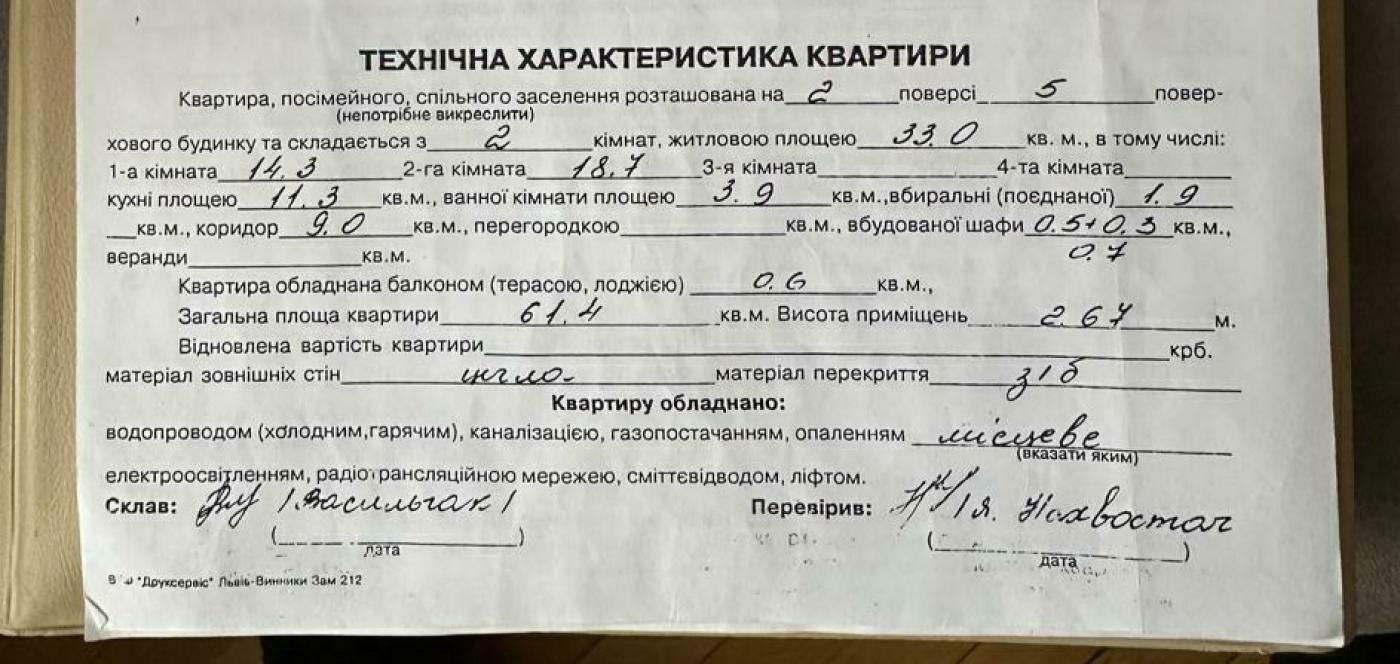 ТЕХНІЧНА ХАРАКТЕРИСТИКА КВАРТИРИ
Квартира, посімейного, спільного заселення розташована на 2 поверсі 5 повер-
(непотрібне викреслити)
хового будинку та складається з 2 кімнат, житловою площею 33.0 кв. м., в тому числі:
1-а кімната 14.3 2-га кімната 18.7 3-я кімната 4-та кімната
кухні площею 11.3 кв.м., ванної кімнати площею 3.9 кв.м.,вбиральні (поєднаної) 1.9
кв.м., коридор 9.0 кв.м., перегородкою кв.м., вбудованої шафи 0.5+0.3 кв.м.,
0.7
веранди кв.м.
Квартира обладнана балконом (терасою, лоджією) 0.6 кв.м.,
Загальна площа квартири 61.4 кв.м. Висота приміщень 2.67 м.
Відновлена вартість квартири крб.
матеріал зовнішніх стін цегла матеріал перекриття з/б
Квартиру обладнано:
водопроводом (холодним,гарячим), каналізацією, газопостачанням, опаленням місцеве
(вказати яким)
електроосвітленням, радіотрансляційною мережею, сміттєвідводом, ліфтом.
Склав: Васильчак Перевірив:
(дата) (дата)
"Друксервіс" Львів-Винники Зам 212